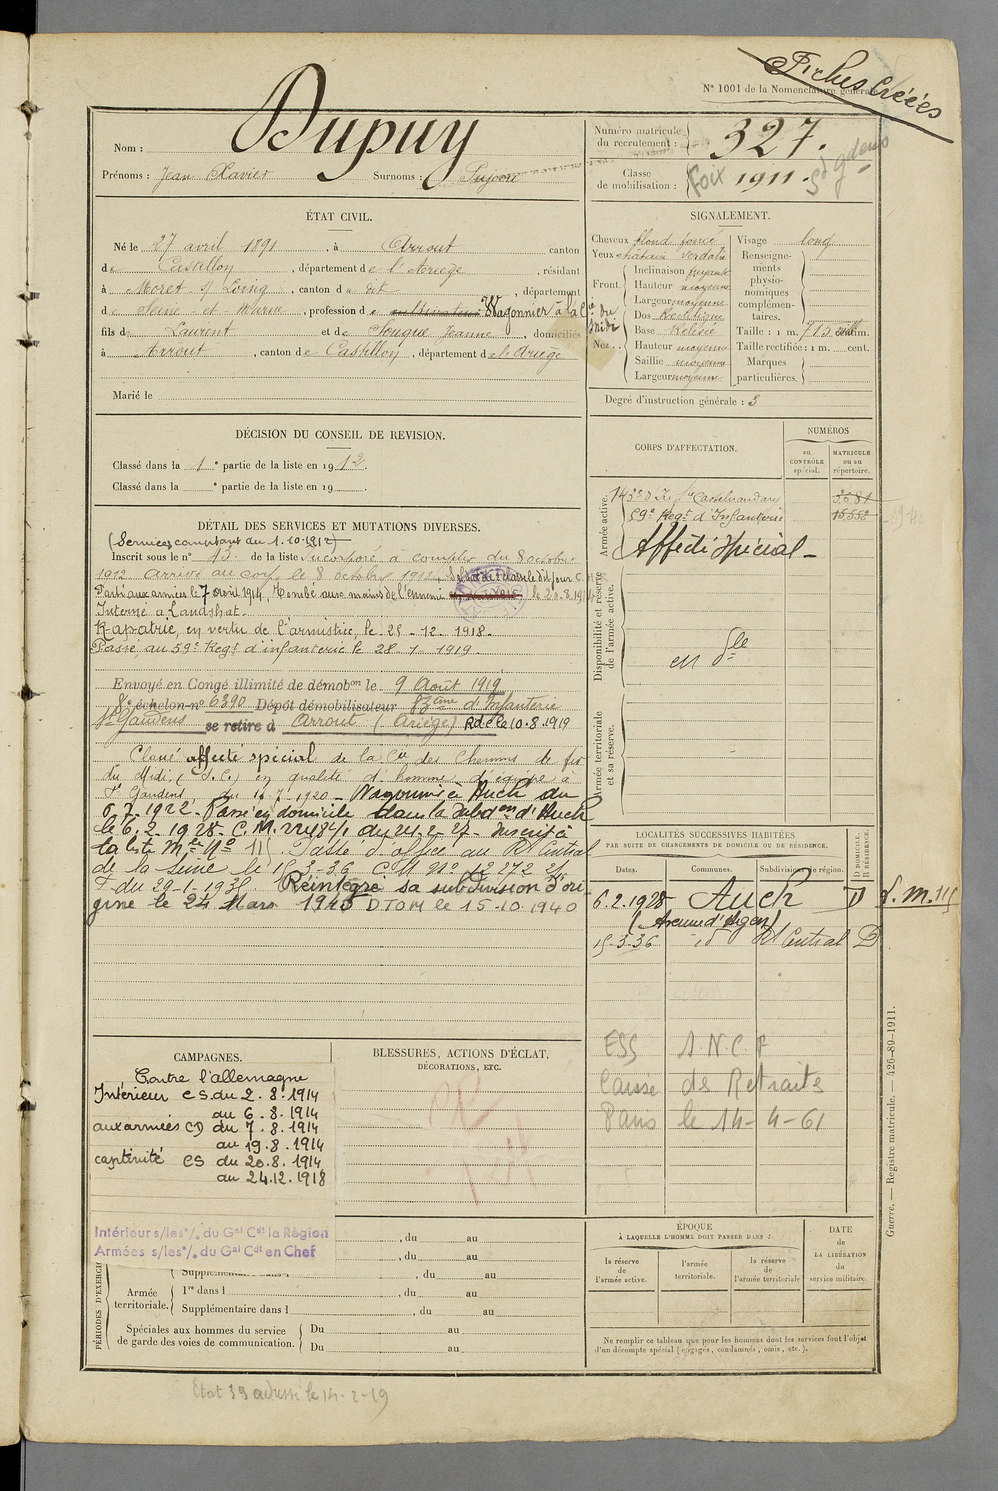 Fiches Créées
N° 1001 de la Nomenclature générale.
Nom : Dupuy
Prénoms : Jean Xavier Surnoms :
Numéro matricule du recrutement : 327.
Classe de mobilisation : 1911.
Foix
ÉTAT CIVIL.
Né le 27 avril 1891, à Arrout canton
de Castillon, département de l'Ariège, résidant
à Moret s/ Loing, canton du dit, département
de Seine et Marne, profession de cultivateur Wagonnier à la Cie du Midi
fils de Laurent et de Jeanne, domiciliés
à Arrout, canton de Castillon, département de l'Ariège
Marié le
SIGNALEMENT.
Cheveux blond foncé
Yeux chatain verdatre
Front. Inclinaison fuyante
Hauteur moyenne
Largeur moyenne
Nez. Dos Rectiligne
Base Relevée
Hauteur moyenne
Saillie moyenne
Largeur moyenne
Visage long
Renseignements physionomiques complémentaires.
Taille : 1 m. 713 cent.
Taille rectifiée : 1 m. cent.
Marques particulières.
Degré d'instruction générale : 3
DÉCISION DU CONSEIL DE REVISION.
Classé dans la 1e partie de la liste en 1912.
Classé dans la e partie de la liste en 19
DÉTAIL DES SERVICES ET MUTATIONS DIVERSES.
(Services comptant du 1.10.1912)
Inscrit sous le n° 13 de la liste Incorporé à compter du 8 octobre
1912 Arrivé au corps le 8 octobre 1912. Soldat de 2e classe le dit jour
Parti aux armées le 7 août 1914, Tombé aux mains de l'ennemi le 20.8.1914
Interné a Landshut.
Rapatrié, en vertu de l'armistice, le 25-12-1918.
Passé au 59e Regt d'infanterie le 28-1-1919.
Envoyé en Congé illimité de démobon le 9 Août 1919
8e échelon n° 6390 Dépôt démobilisateur 83ème d'Infanterie
St Gaudens se retire à Arrout (Ariège) R.d.C le 10.8.1919
Classé affecté spécial de la Cie des Chemins de fer
du Midi, (S.C.) en qualité d'homme d'équipe à
St Gaudens, du 10-7-1920 - Wagonnier à Auch du
1922. Passé en domicile dans la subdon d'Auch
le 6.2.1928 - C.M. 22484/1 du 24-2-27 - Inscrit à
la liste Mle N° 115. Passé d'office au Rt Central
de la Seine le 15-3-36 C.M n°
du 29-1-1935. Réintègre sa subdivision d'ori
gine le 24 Mars 1940 DTOM le 15-10-1940
CORPS D'AFFECTATION.
NUMÉROS
AU CONTRÔLE spécial.
MATRICULE ou au répertoire.
Armée active.
143e d'Ire Castelnaudary 3681
59e Regt d'Infanterie 15552
Affecté Spécial
Disponibilité et réserve de l'armée active.
en dle
Armée territoriale et sa réserve.
LOCALITÉS SUCCESSIVES HABITÉES
PAR SUITE DE CHANGEMENTS DE DOMICILE OU DE RÉSIDENCE.
Dates. Communes. Subdivision de région. D DOMICILE. R RÉSIDENCE.
6.2.1928 Auch D L.M.115
(Avenue d'Agen)
15-3-36 id Rt Central D
ESS S.N.C.F
Caisse des Retraites
Paris le 14-4-61
CAMPAGNES.
Contre l'allemagne
Intérieur CS. du 2.8.1914
au 6.8.1914
aux armées CD du 7.8.1914
au 19.8.1914
captivité CS du 20.8.1914
au 24.12.1918
Intérieur s/les °/. du Gal Cdt la Région
Armées s/les °/. du Gal Cdt en Chef
BLESSURES, ACTIONS D'ÉCLAT,
DÉCORATIONS, ETC.
PÉRIODES D'EXERCI
, du au
, du au
Supplémentaire dans l , du au
Armée territoriale. 1re dans l , du au
Supplémentaire dans l , du au
Spéciales aux hommes du service de garde des voies de communication. Du au
Du au
ÉPOQUE
À LAQUELLE L'HOMME DOIT PASSER DANS :
la réserve de l'armée active.
l'armée territoriale.
la réserve de l'armée territoriale
DATE DE LA LIBÉRATION du service militaire.
Ne remplir ce tableau que pour les hommes dont les services font l'objet
d'un décompte spécial (engagés, condamnés, omis, etc.).
Guerre. — Registre matricule. — 426-89-1911.
Etat 39 adressé le 14-2-19